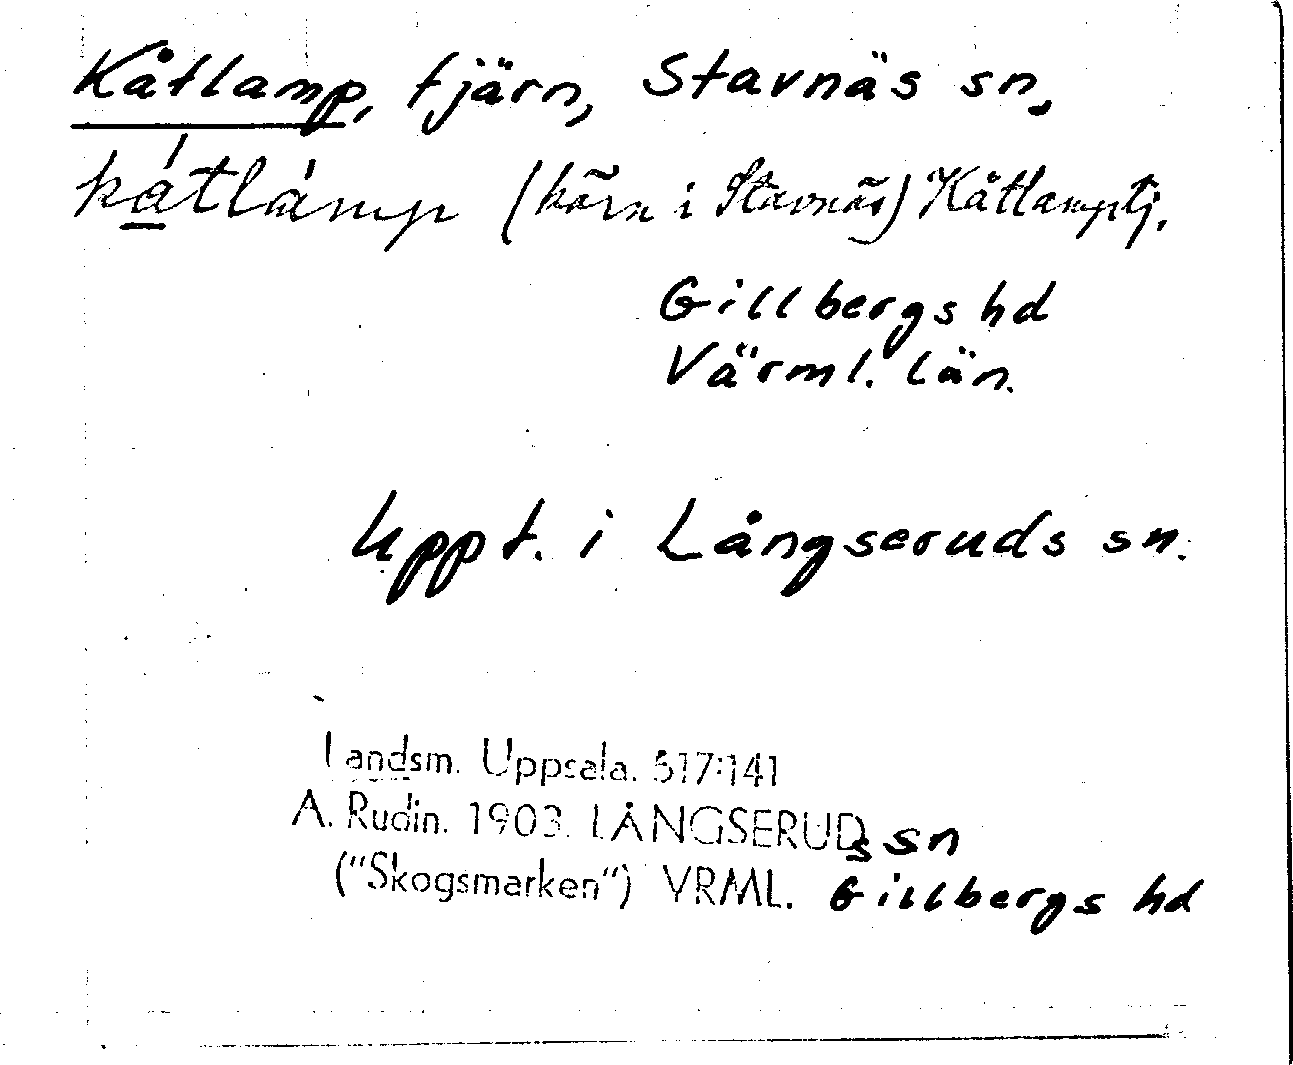 Kåtlamp, tjärn, Stavnäs sn,
kátlámp (kärn i Stavnäs) Kåtlamptj.
Gillbergs hd
Värml. län.
Uppt. i Långseruds sn.
Landsm. Uppsala. 517:141
A. Rudin. 1903. LÅNGSERUDs sn
("Skogsmarken") VRML. Gillbergs hd